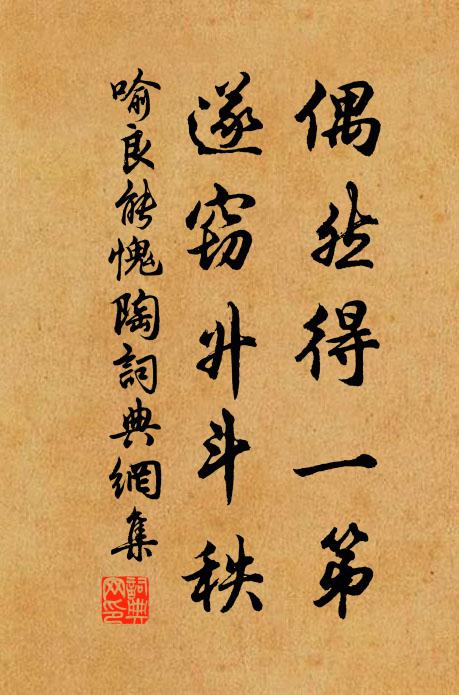 偶然得一第
遂窃升斗秩
喻良能愧陶詞典網集
詞典網印